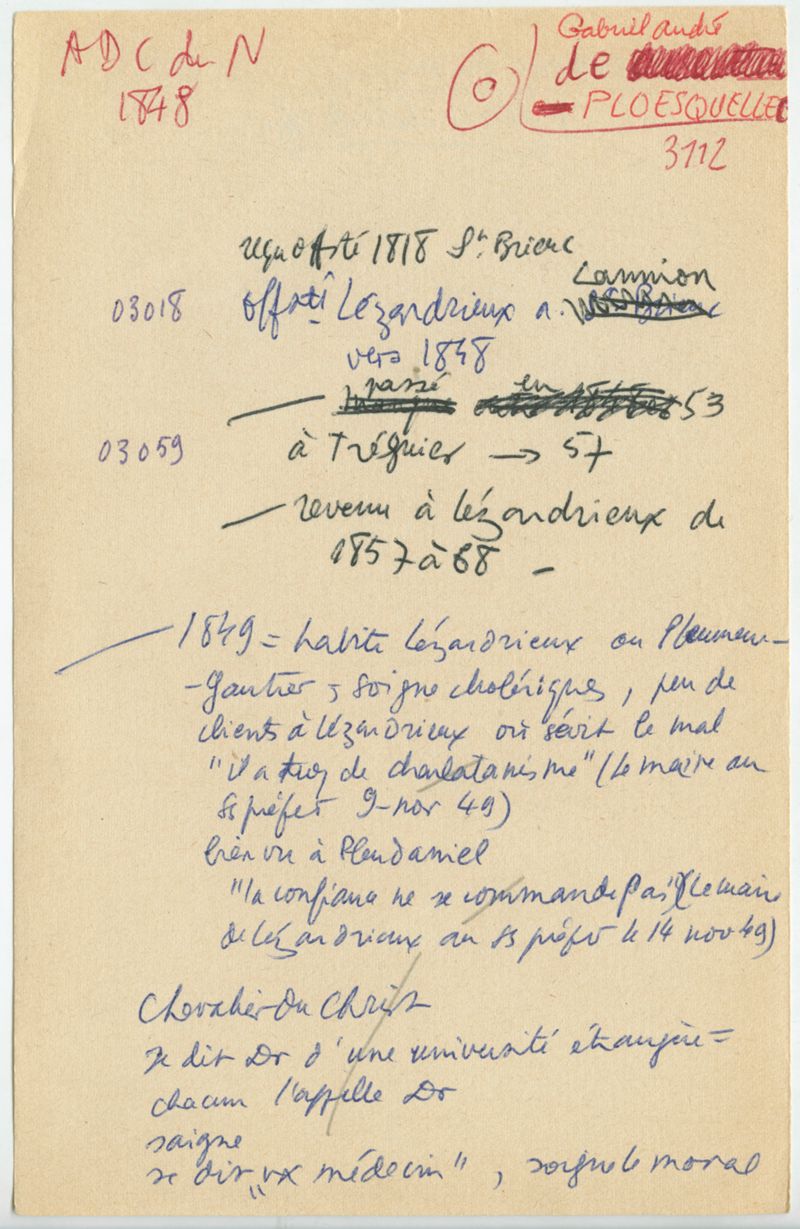 ADC du N
1848
Gabriel André
de
PLOESQUELLEC
3112
reçu offté 1818 St Brieuc
Lannion
03018 offsti Lézardrieux a.
vers 1848
passé en
53
03059 à Tréguier → 57
— revenu à Lézardrieux de
1857 à 68 —
— 1849 = habite Lézardrieux ou Pleumeur-
-Gautier = soigne cholériques, peu de
clients à Lézardrieux où sévit le mal
"il a trop de charlatanisme" (le maire au
ss préfet 9-nov 49)
bien vu à Pleudaniel
"la confiance ne se commande pas" (Le maire
de Lézardrieux au ss préfet le 14 nov 49)
Chevalier du Christ
se dit Dr d'une université étrangère =
chacun l'appelle Dr
soigne
se dit "vx médecin", soigne le moral